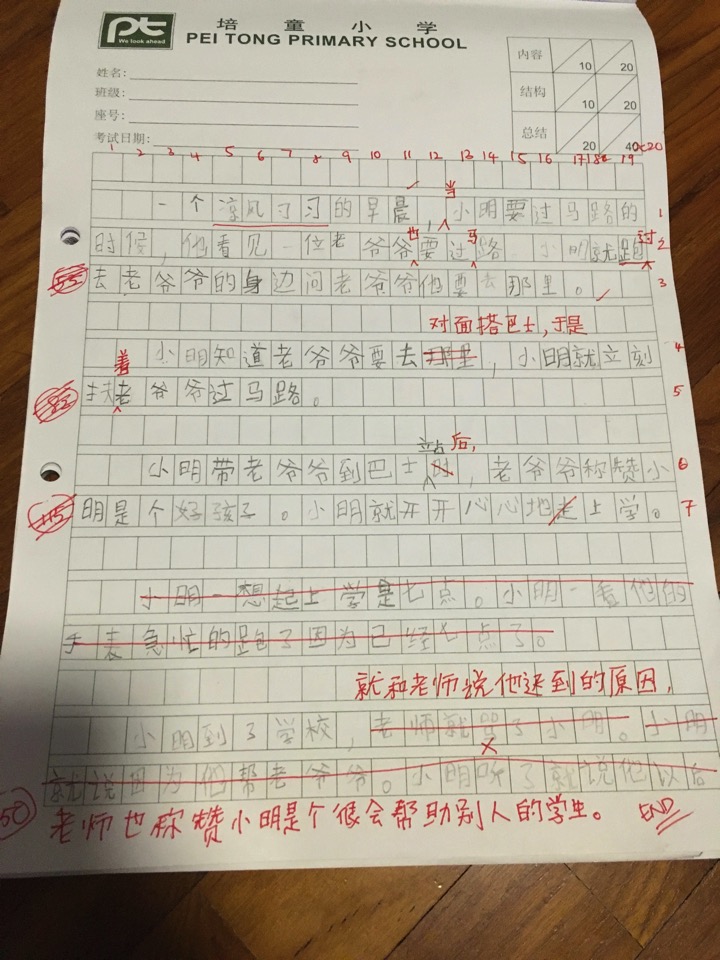 培童小学
PEI TONG PRIMARY SCHOOL
pt
We look ahead
姓名：
班级：
座号：
考试日期：
内容 10 20
结构 10 20
总结 20 40
1 2 3 4 5 6 7 8 9 10 11 12 13 14 15 16 17 18 19 x20
当
一个凉风习习的早晨，小明要过马路的 1
也 马 过
时候，他看见一位老爷爷要过路 小明就跑 2
55 去老爷爷的身边问老爷爷他要去那里。 3
对面搭巴士，于是
着 小明知道老爷爷要去那里，小明就立刻 4
扶老爷爷过马路。 5
站后，
小明带老爷爷到巴士时，老爷爷称赞小 6
115 明是个好孩子。小明就开开心心地走上学。 7
小明一想起上学是七点。小明一看他的
手表急忙的跑了因为已经七点了。
就和老师说他迟到的原因，
小明到了学校，老师就骂了小明。小明
就说因为他帮老爷爷。小明听了就说他以后
50 老师也称赞小明是个很会帮助别人的学生。 END